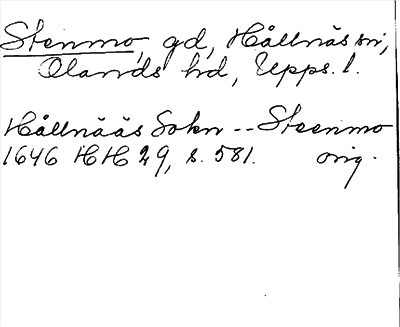 Stenmo, gd, Hållnäs sn,
Olands hd, Upps. l.
Hållnääs Sokn -- Steenmo
1646 HH 29, s. 581. orig.